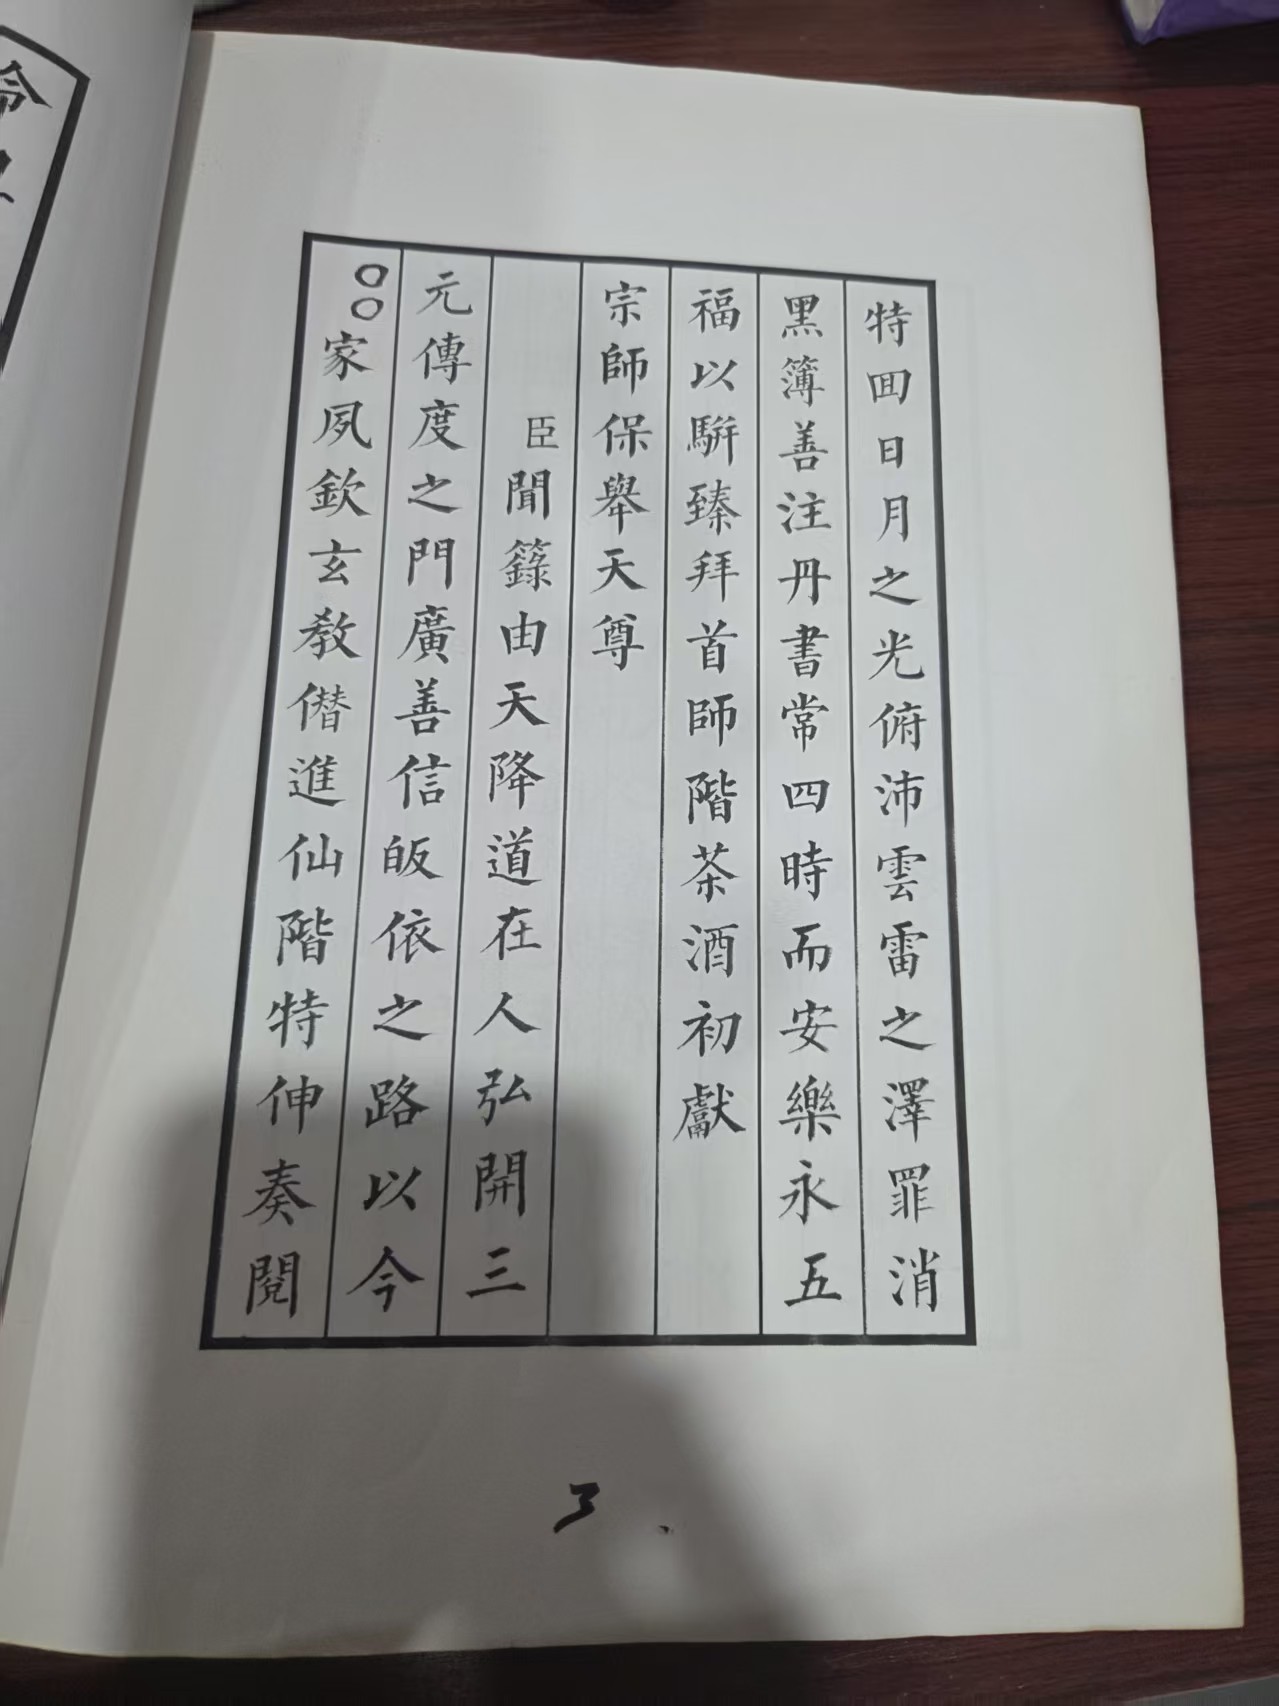 特囬日月之光俯沛雲雷之澤罪消
黑簿善注丹書常四時而安樂永五
福以駢臻拜首師階茶酒初獻
宗師保舉天尊
臣聞籙由天降道在人弘開三
元傳度之門廣善信皈依之路以今
〇〇家夙欽玄教僭進仙階特伸奏閱
3